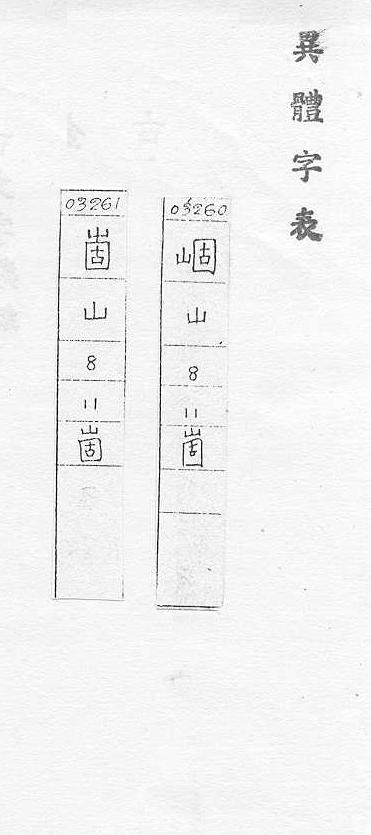 異體字表
03260
崓
山
8
11
崮
03261
崮
山
8
11
崮